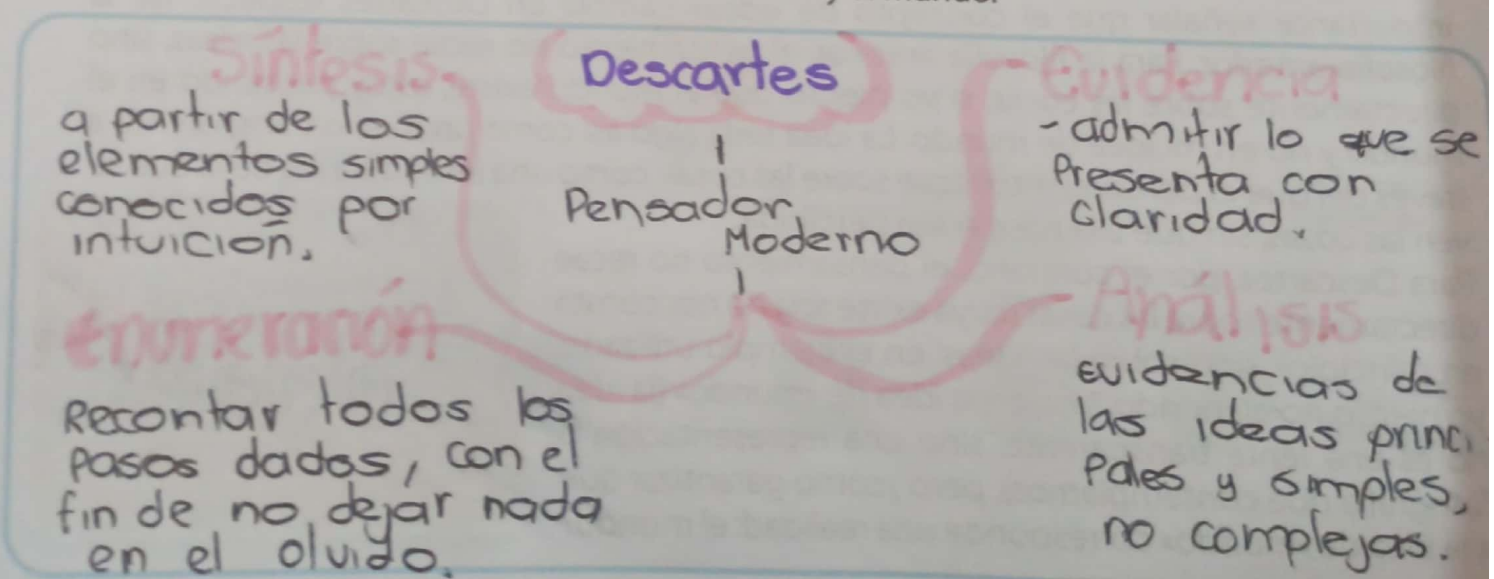 Descartes
Pensador
Moderno
Síntesis
a partir de los
elementos simples
conocidos por
intuición.
Evidencia
- admitir lo que se
Presenta con
claridad.
enumeración
Recontar todos los
pasos dados, con el
fin de no dejar nada
en el olvido.
Análisis
evidencias de
las ideas princi
pales y simples,
no complejas.